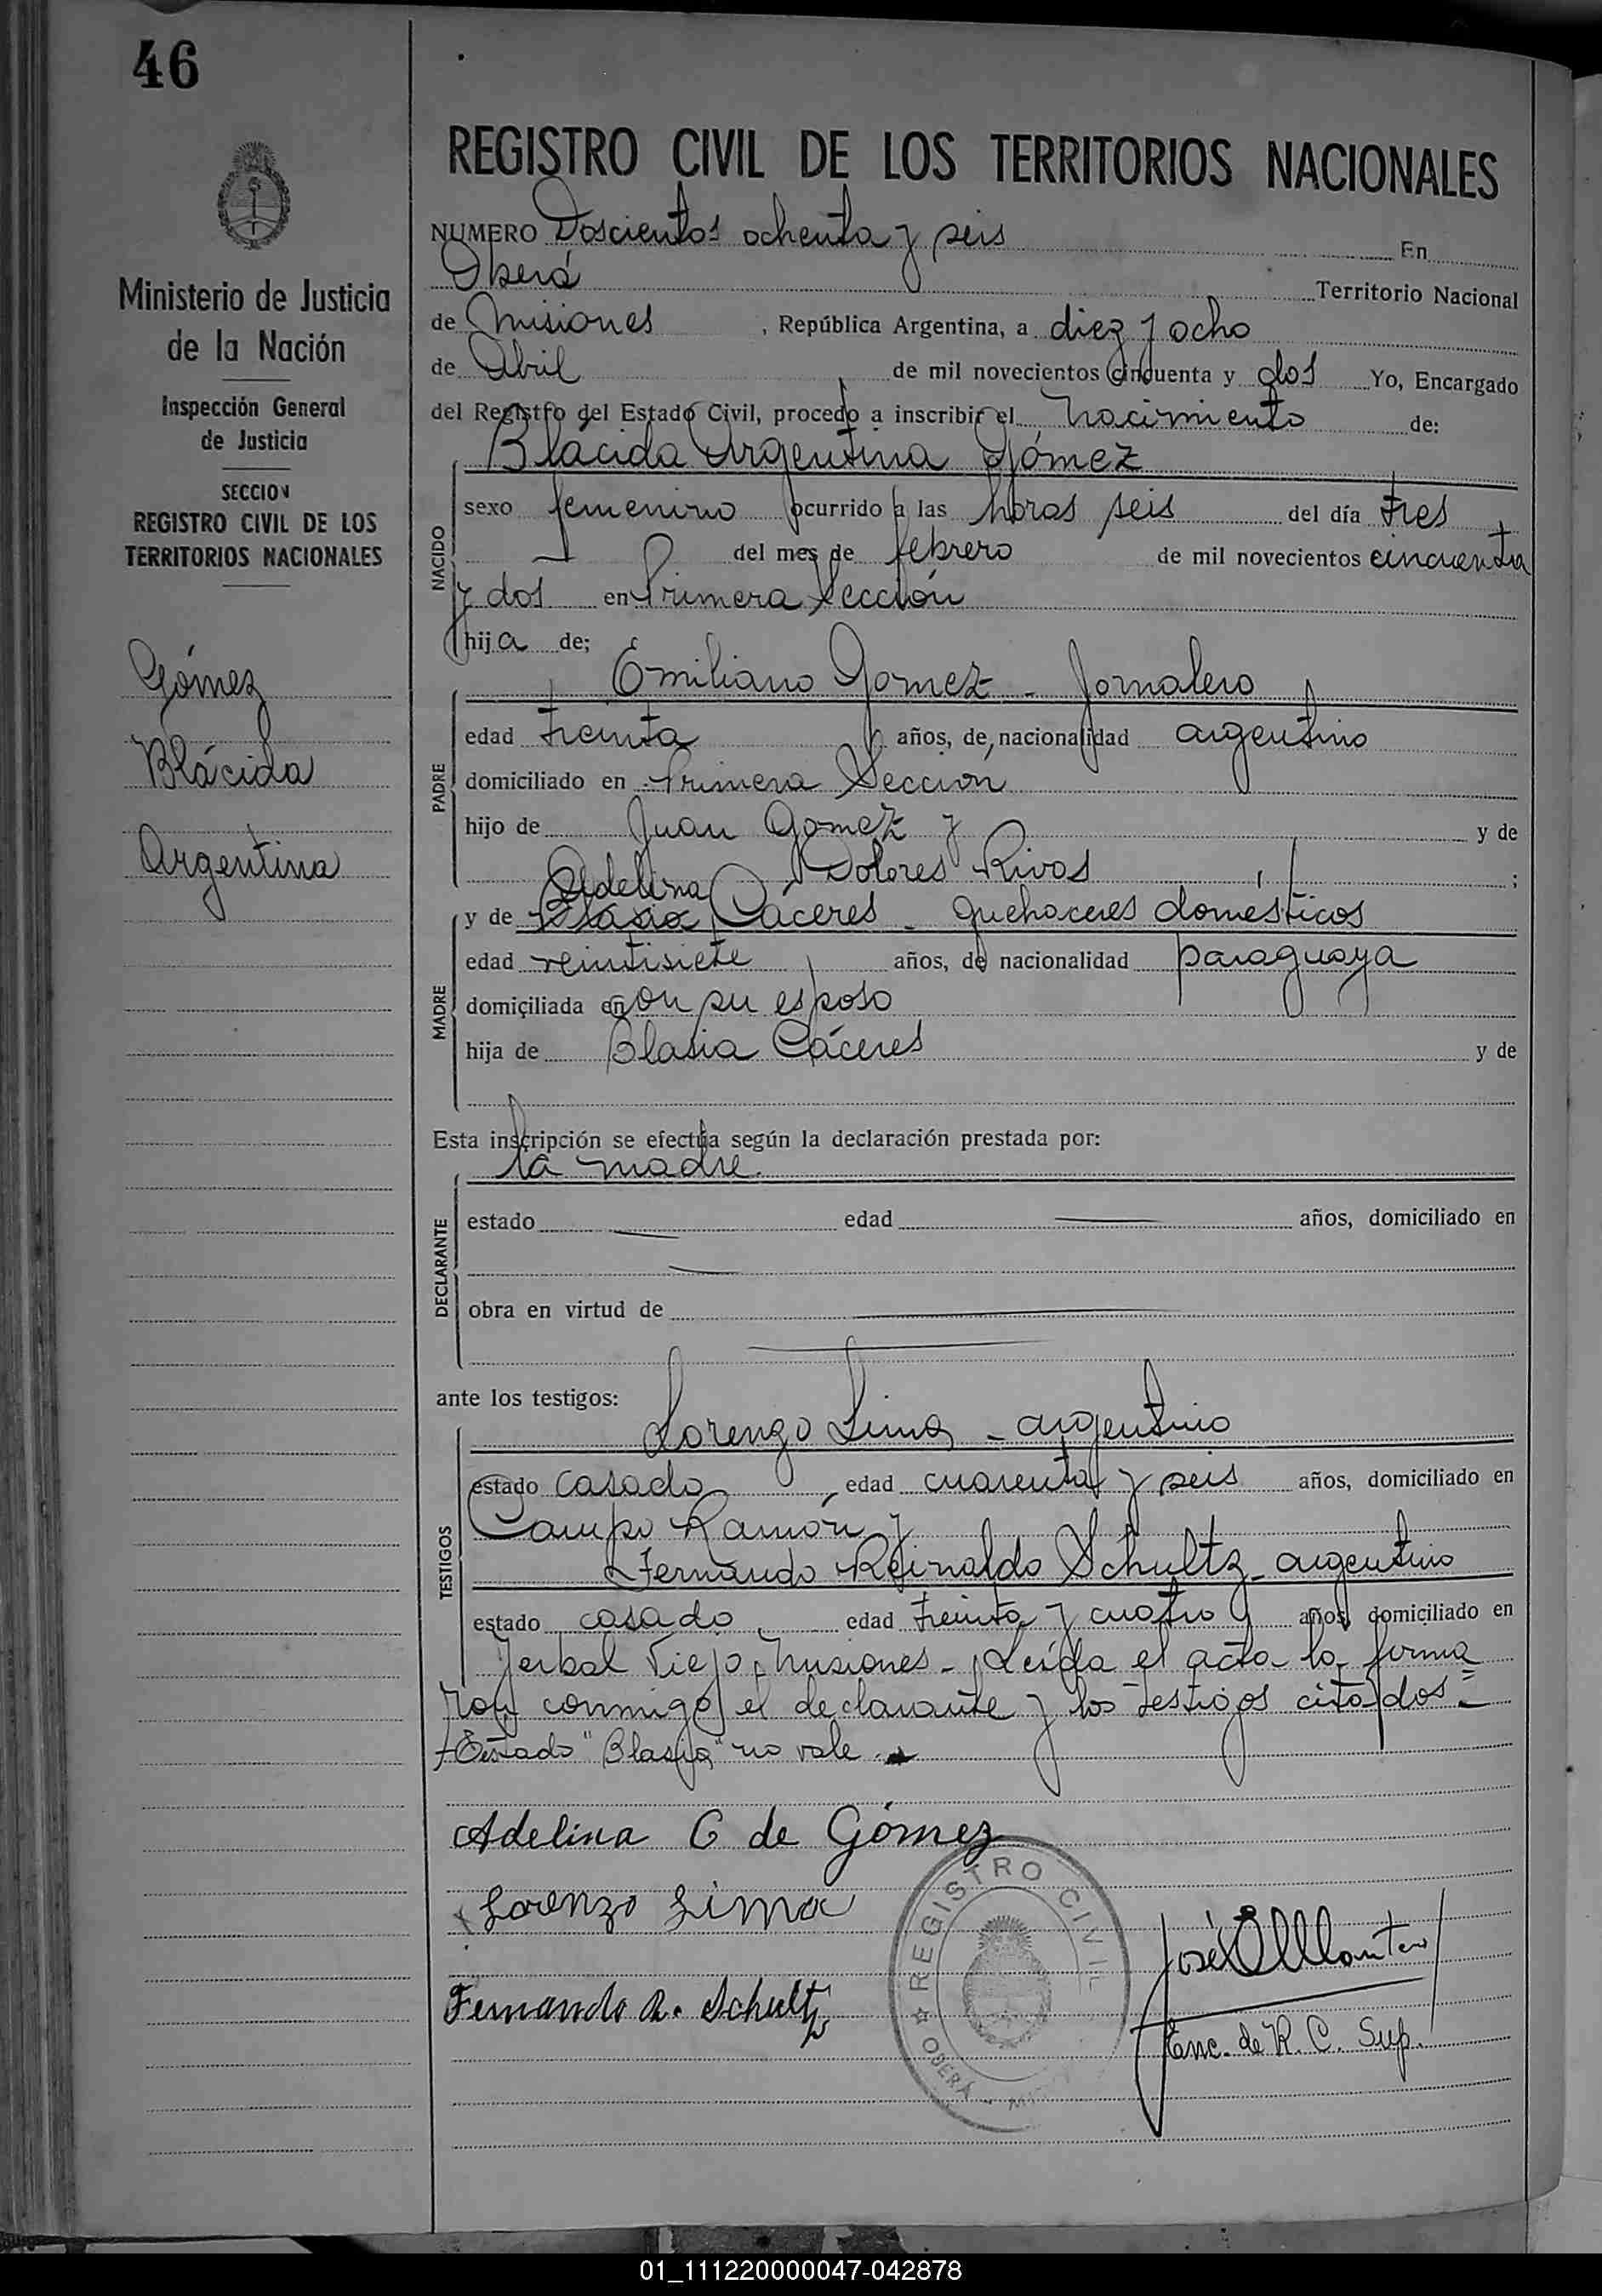 46
Ministerio de Justicia
de la Nación
Inspección General
de Justicia
SECCION
REGISTRO CIVIL DE LOS
TERRITORIOS NACIONALES
Gómez
Blácida
Argentina
REGISTRO CIVIL DE LOS TERRITORIOS NACIONALES
NUMERO Doscientos ochenta y seis En
Oberá Territorio Nacional
de Misiones , República Argentina, a diez y ocho
de Abril de mil novecientos cincuenta y dos Yo, Encargado
del Registro del Estado Civil, procedo a inscribir el nacimiento de:
Blácida Argentina Gómez
NACIDO
sexo femenino ocurrido a las horas seis del día tres
— del mes de febrero de mil novecientos cincuenta
y dos en Primera Sección
hija de;
PADRE
Emiliano Gomez - Jornalero
edad treinta años, de nacionalidad argentino
domiciliado en Primera Sección
hijo de Juan Gomez y y de
Dolores Rivas ;
Adelina
MADRE
y de Blasia Cáceres - quehaceres domésticos
edad veintisiete años, de nacionalidad paraguaya
domiciliada en con su esposo
hija de Blasia Cáceres y de
Esta inscripción se efectúa según la declaración prestada por:
la madre.
DECLARANTE
estado — edad — años, domiciliado en
—
obra en virtud de —
—
ante los testigos:
TESTIGOS
Lorenzo Lima - argentino
estado casado edad cuarenta y seis años, domiciliado en
Campo Ramón y
Fernando Reinaldo Schultz - argentino
estado casado edad treinta y cuatro años, domiciliado en
Yerbal Viejo, Misiones - Leída el acta la firma=
ron conmigo el declarante y los testigos citados -
Testado "Blasia" no vale.
Adelina C de Gómez
Lorenzo Lima
Fernando R. Schultz
REGISTRO CIVIL
OBERÁ -
José
Enc. de R. C. Sup.
01_111220000047-042878